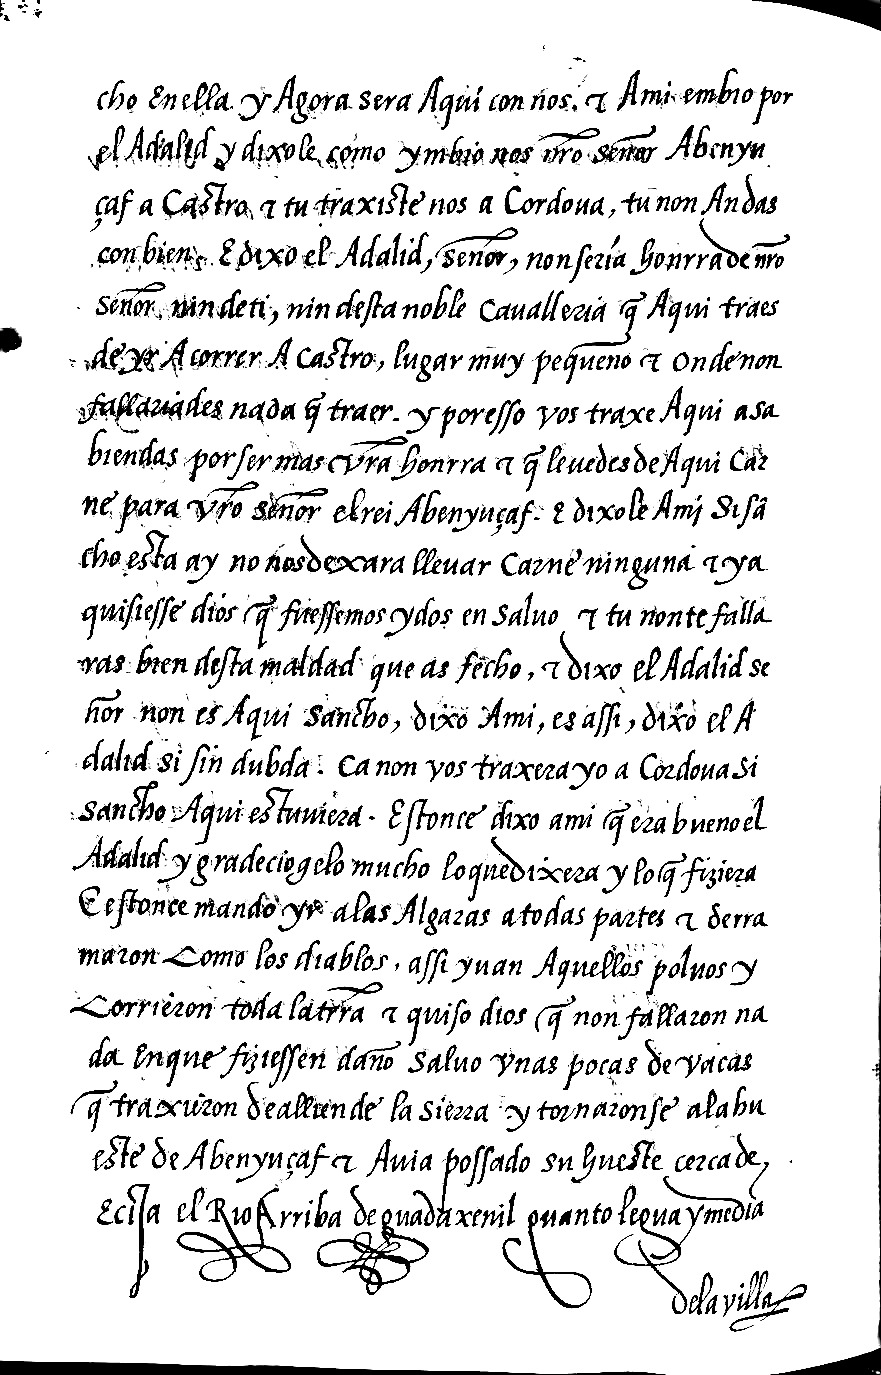 cho En ella. y Agora sera Aqui con nos. & Ami embio por
el Adalid y dixole como ymbio nos nr̃o señor Abenyu
çaf a Castro & tu traxiste nos a Cordoua, tu non Andas
con bien, E dixo el Adalid, señor, non seria honrra de nr̃o
señor nin de ti, nin desta noble Caualleria q̃ Aqui traes
de yr A correr A Castro, lugar muy pequeno & onde non
fallariades nada q̃ traer. y por esso vos traxe Aqui a sa
biendas por ser mas vr̃a honrra & q̃ leuedes de Aqui Car
ne para vr̃o señor el rei Abenyuçaf. E dixole Ami Si sã
cho esta ay no nos dexara lleuar Carne ninguna & ya
quisiesse dios q̃ fuessemos ydos en saluo & tu non te falla
ras bien desta maldad que as fecho, & dixo el Adalid se
ñor non es Aqui sancho, dixo Ami, es assi, dixo el A
dalid si sin dubda: Ca non vos traxera yo a Cordoua si
sancho Aqui estuuiera. Estonce dixo ami q̃ era bueno el
Adalid y gradeciogelo mucho lo que dixera y lo q̃ fiziera
E estonce mando yr a las Algaras a todas partes & derra
maron Como los diablos, assi yuan Aquellos poluos y
Corrieron toda la trr̃a & quiso dios q̃ non fallaron na
da En que fiziessen daño saluo vnas pocas de vacas
q̃ traxieron de allende la sierra y tornaronse a la hu
este de Abenyuçaf & Auia possado su hueste cerca de,
Ecija el Rio Arriba de guadaxenil quanto legua y media
de la villa